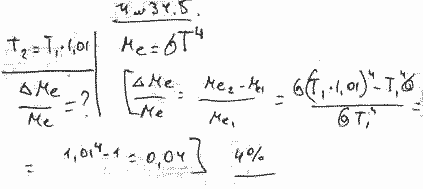 4 и 34.5.
T₂ = T₁·1,01
Me = σT⁴
ΔMe/Me = ?
[ΔMe/Me = (Me₂ - Me₁)/Me₁ = (σ(T₁·1,01)⁴ - T₁⁴σ)/(σT₁⁴) =
= 1,01⁴-1 = 0,04] 4%